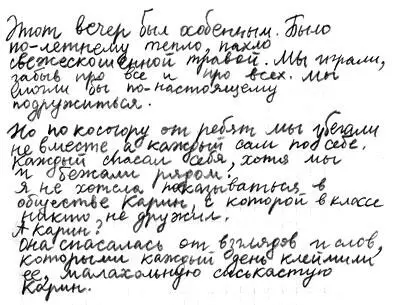 Этот вечер был особенным. Было
по-летнему тепло, пахло
свежескошенной травой. Мы играли,
забыв про всё и про всех. Мы
могли бы по-настоящему
подружиться.
Но по косогору от ребят мы убегали
не вместе, а каждый сам по себе.
Каждый спасал себя, хотя мы
и бежали рядом.
Я не хотела показываться в
обществе Карин, с которой в классе
никто не дружил.
А Карин?
Она спасалась от взглядов и слов,
которыми каждый день клеймили
её, малахольную сиськастую
Карин.